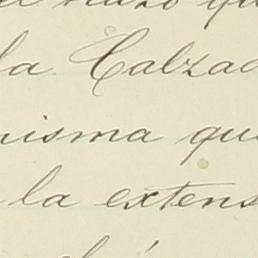 la Calzad
misma que
la extens